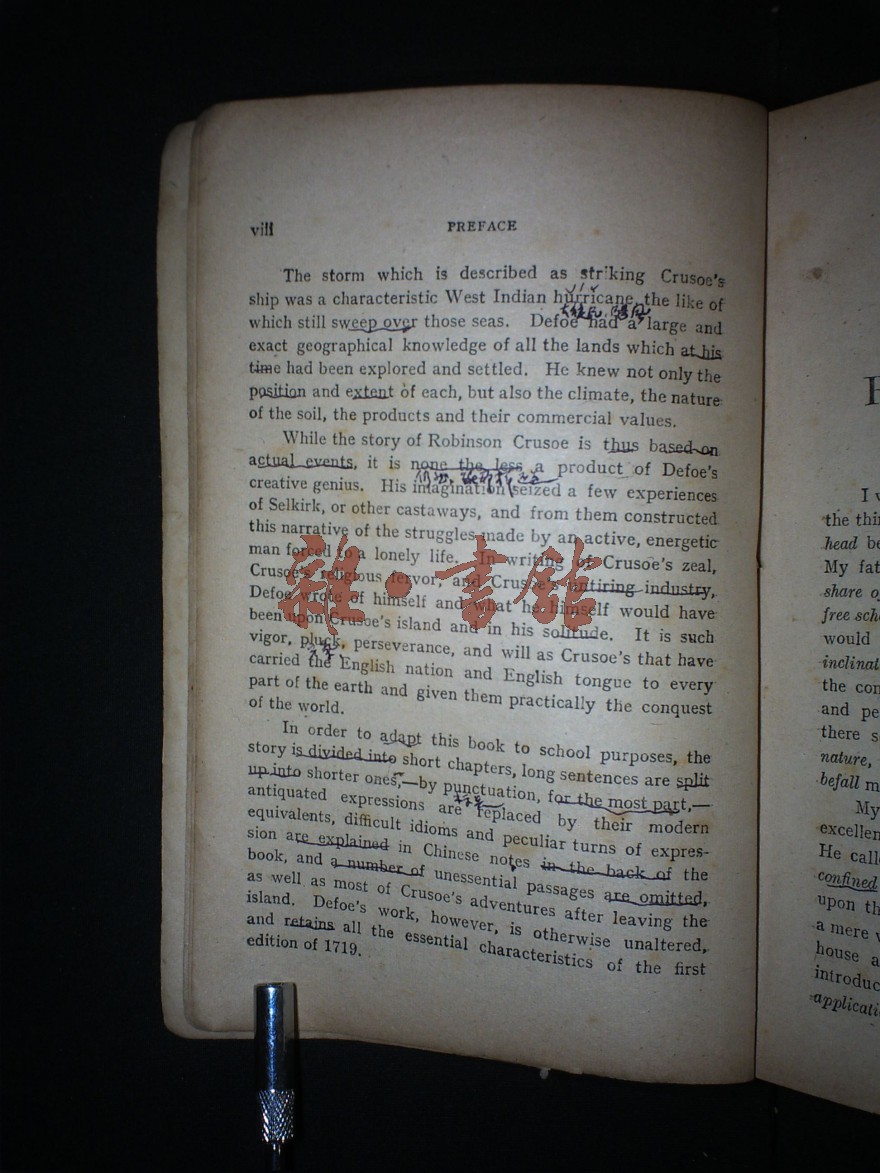 viii
PREFACE
The storm which is described as striking Crusoe's
ship was a characteristic West Indian hurricane, the like of
which still sweep over those seas. Defoe had a large and
exact geographical knowledge of all the lands which at his
time had been explored and settled. He knew not only the
position and extent of each, but also the climate, the nature
of the soil, the products and their commercial values.
While the story of Robinson Crusoe is thus based on
actual events, it is none the less a product of Defoe's
creative genius. His imagination seized a few experiences
of Selkirk, or other castaways, and from them constructed
this narrative of the struggles made by an active, energetic
man forced to a lonely life. In writing of Crusoe's zeal,
Crusoe's religious fervor, and Crusoe's untiring industry,
Defoe wrote of himself and what he himself would have
been upon Crusoe's island and in his solitude. It is such
vigor, pluck, perseverance, and will as Crusoe's that have
carried the English nation and English tongue to every
part of the earth and given them practically the conquest
of the world.
In order to adapt this book to school purposes, the
story is divided into short chapters, long sentences are split
up into shorter ones,—by punctuation, for the most part,—
antiquated expressions are replaced by their modern
equivalents, difficult idioms and peculiar turns of expres-
sion are explained in Chinese notes in the back of the
book, and a number of unessential passages are omitted,
as well as most of Crusoe's adventures after leaving the
island. Defoe's work, however, is otherwise unaltered,
and retains all the essential characteristics of the first
edition of 1719.
雜·書館
I
the
head
My
share
free
would
the
and
there
nature,
befall
My
He
confined
upon
a mere
house